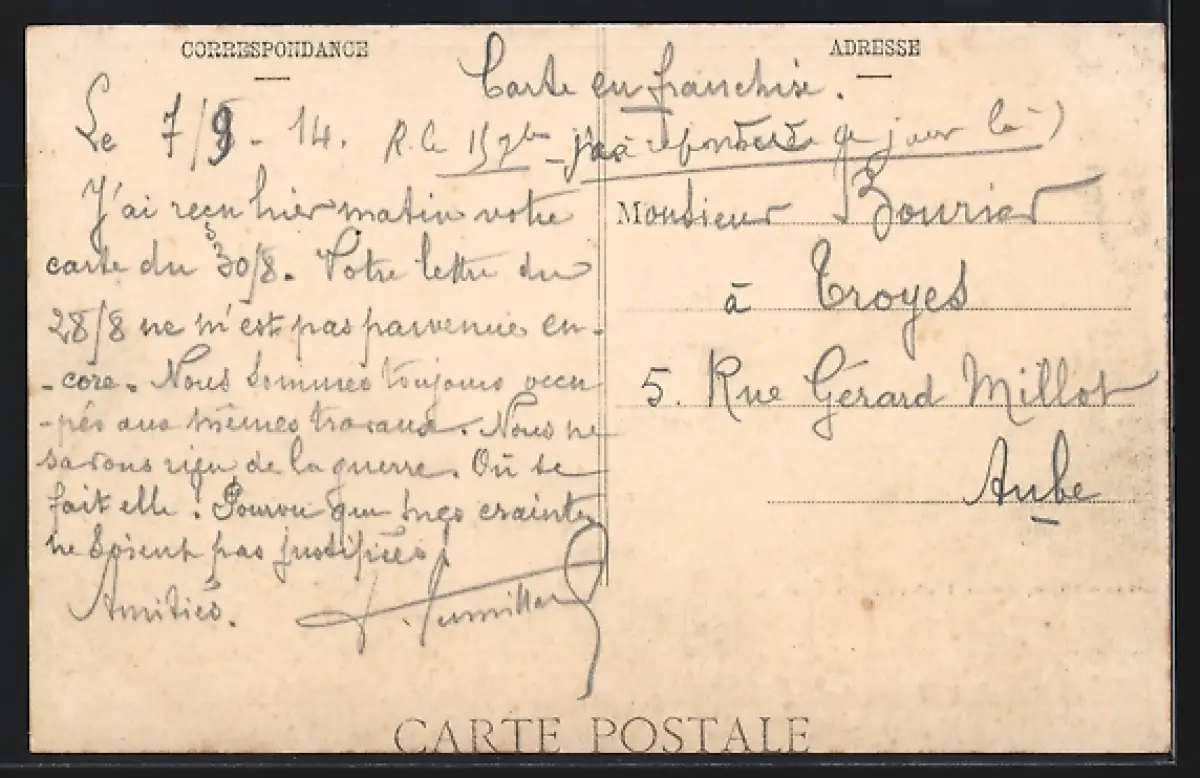 CORRESPONDANCE
ADRESSE
Carte en franchise.
Le 7/9 - 14. R. le 15 7bre - j'ai répondu ce jour là)
J'ai reçu hier matin votre
carte du 30/8. Votre lettre du
28/8 ne m'est pas parvenue en-
-core. Nous sommes toujours occu
-pés aux mêmes travaux. Nous ne
savons rien de la guerre. Où se
fait elle! Pourvu que mes craintes
ne soient pas justifiées!
Amitiés.
Monsieur Bourier
à Troyes
5. Rue Gérard Millot
Aube
CARTE POSTALE